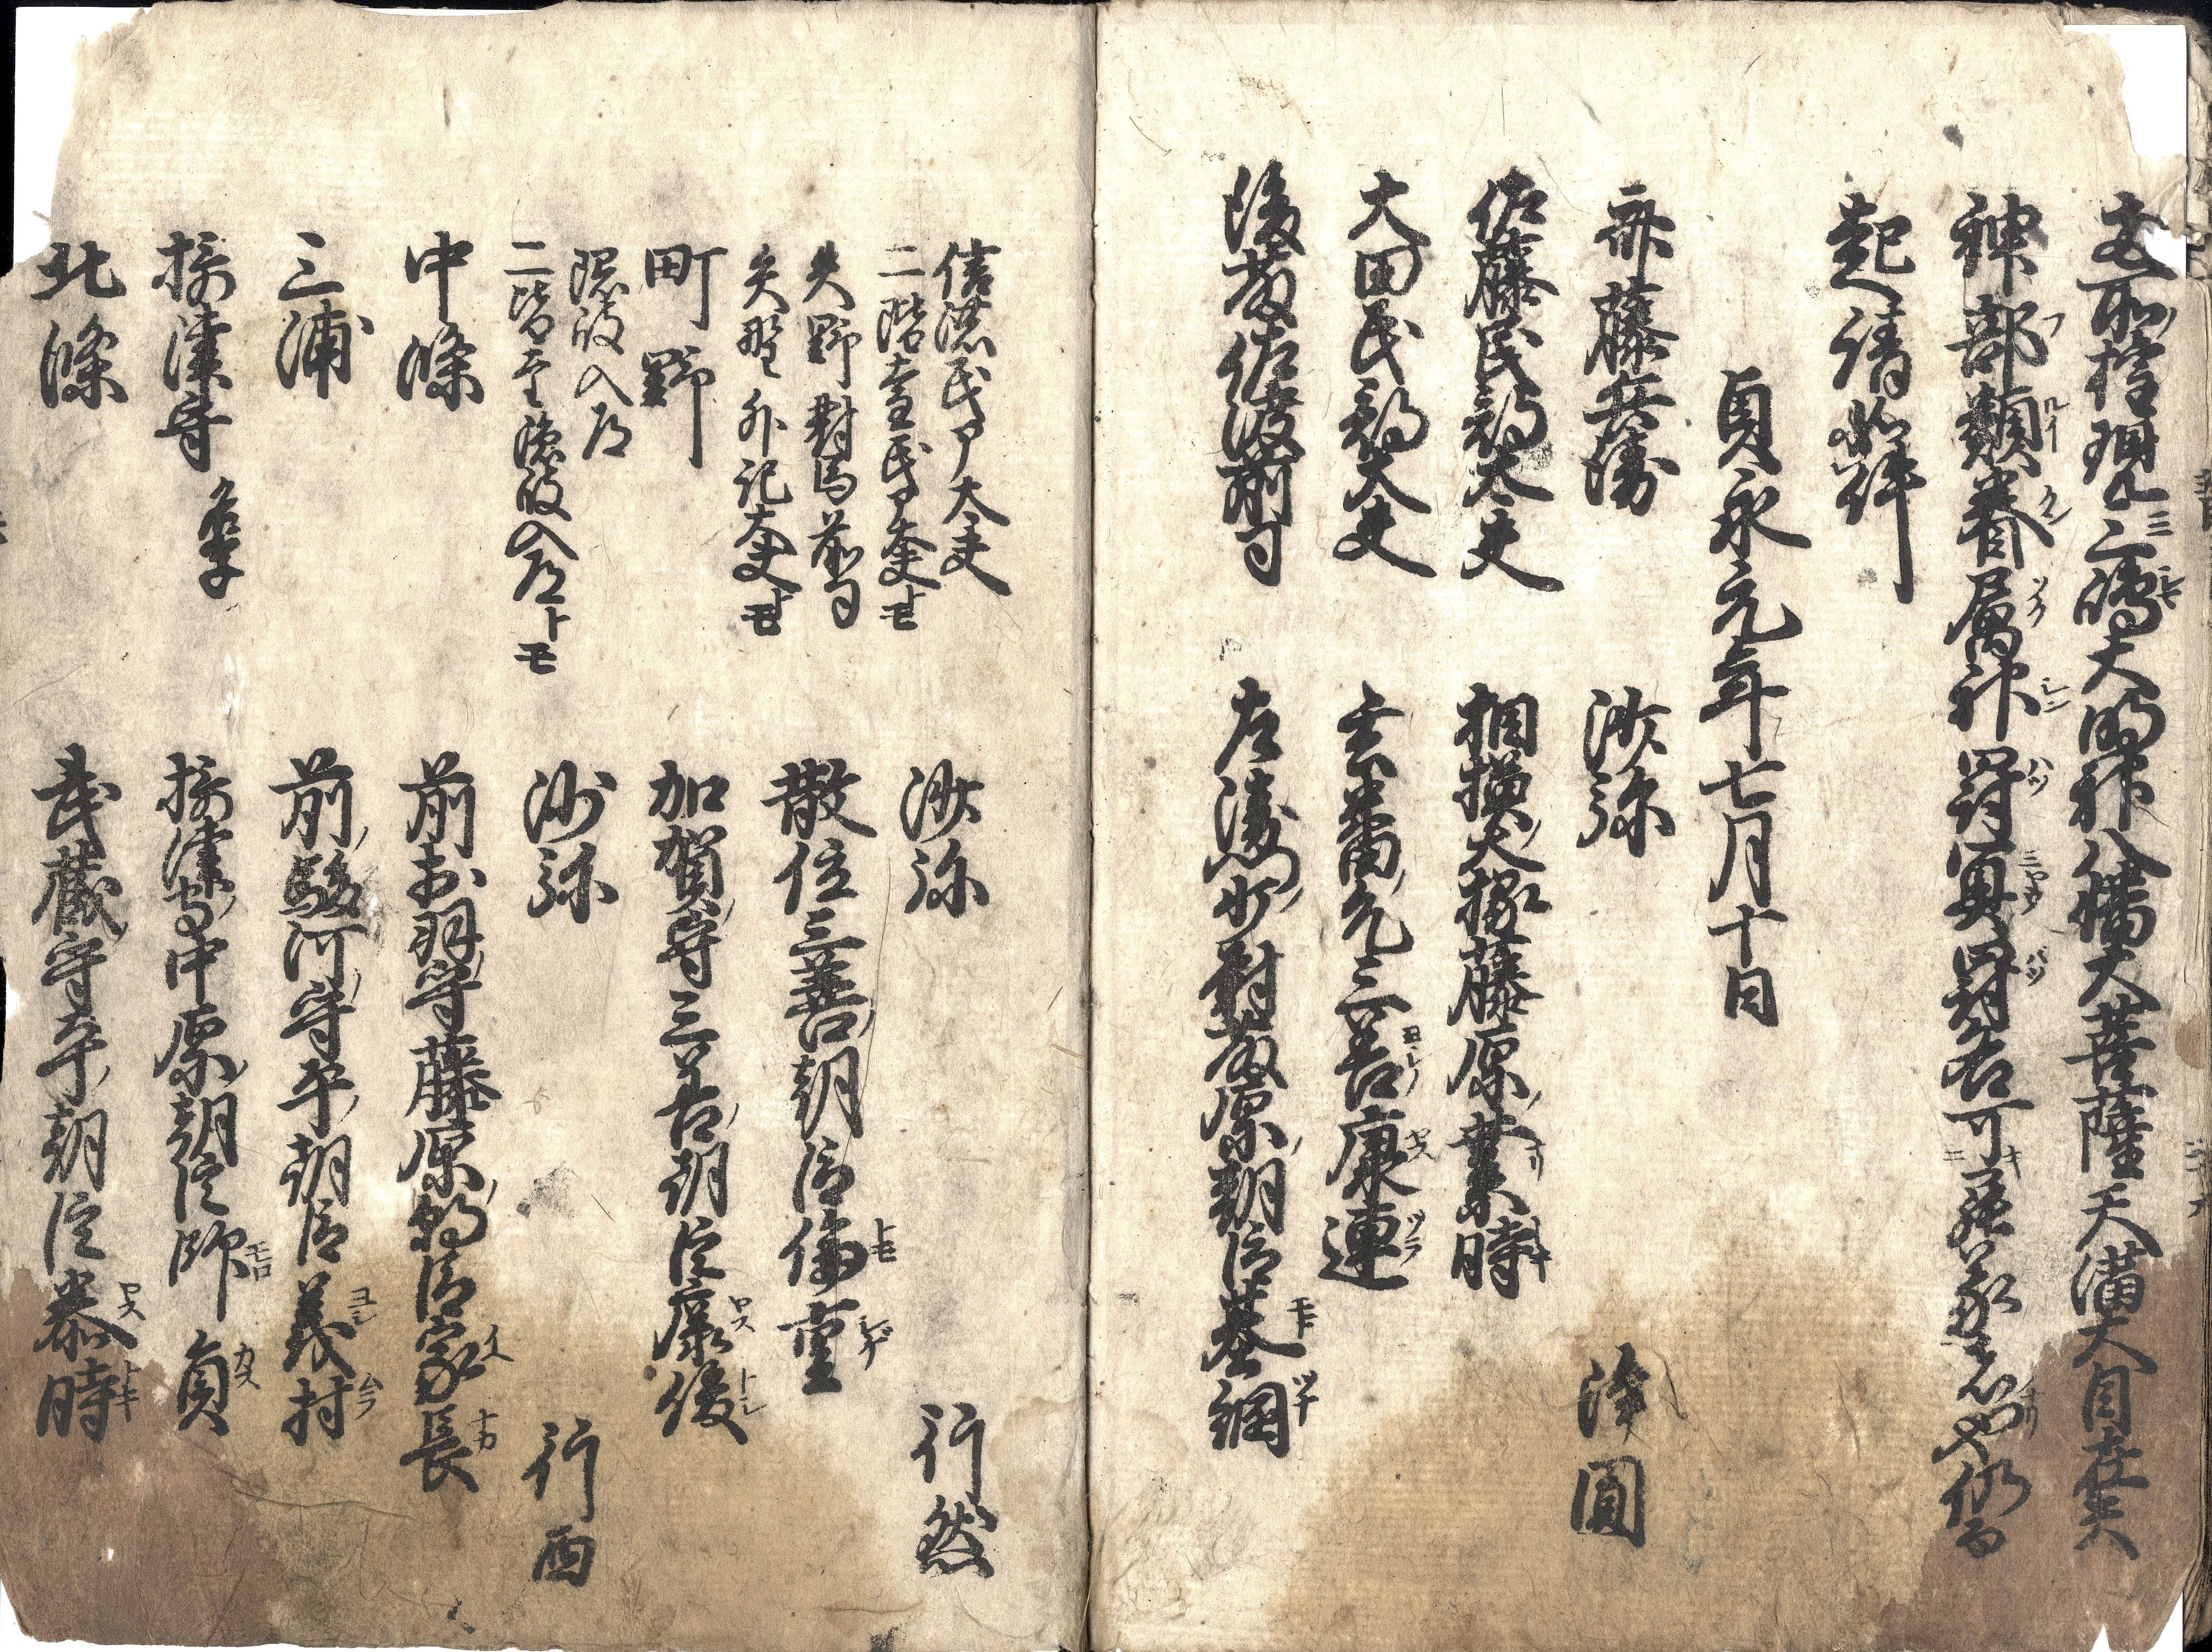 豆箱根両所権現三嶋大明神八幡大菩薩天満大自在天
神部類眷属神罰冥罰各可罷蒙者也仍
起請如件
貞永元年七月十日
斎藤兵衛 沙弥 浄圓
佐藤民部大夫 相摸大掾藤原業時
大田民部大夫 玄蕃允三善康連
後藤佐渡前司 左衛門少尉藤原朝臣基綱
信濃民ア大夫 沙弥 行然
二階堂民ア大夫トモ
矢野對馬前司 散位三善朝臣倫重
矢野外記大夫トモ
町野 加賀守三善朝臣康俊
隠岐入道 沙弥 行西
二階堂隠岐入道トモ
中條 前出羽守藤原朝臣家長
三浦 前駿河守平朝臣義村
摂津守 摂津守中原朝臣師員
北條 武蔵守平朝臣泰時